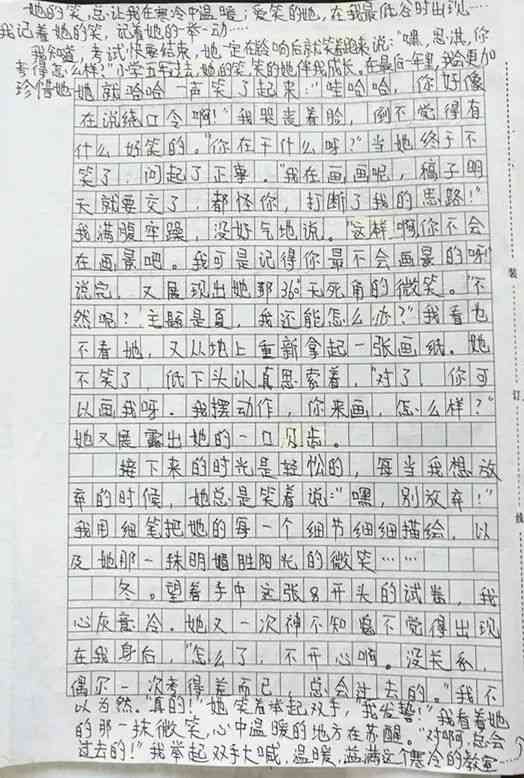 她的笑,总让我在寒冷中温暖;爱笑的她,在我最低谷时出现……
我记着她的笑,记着她的一举一动……
我知道,考试快要结束,她一定在铃响后就笑着跑来说:“嘿,思淇,你
考得怎么样?”小学五年过去,她的笑,笑的她伴我成长。在最后一年里,我会更加
珍惜她
她就哈哈一声笑了起来:“哇哈哈,你好像
在说绕口令啊!”我哭丧着脸,倒不觉得有
什么好笑的。“你在干什么呀?”当她终于不
笑了,问起了正事。“我在画画呢,稿子明
天就要交了,都怪你,打断了我的思路!”
我满腹牢躁,没好气地说。“这样啊,你不会
在画景吧。我可是记得你最不会画景的呀!”
说完,又展现出她那360°无死角的微笑。“不
然呢?主题是夏,我还能怎么办?”我看也
不看她,又从地上重新拿起一张画纸。她
不笑了,低下头认真思索着,“对了,你可
以画我呀。我摆动作,你来画,怎么样?”
她又展露出她的一口牙齿。
接下来的时光是轻松的,每当我想放
弃的时候,她总是笑着说:“嘿,别放弃!”
我用细笔把她的每一个细节细细描绘,以
及她那一抹明媚胜阳光的微笑……
冬。望着手中这张8开头的试卷,我
心灰意冷。她又一次神不知鬼不觉得出现
在我身后,“怎么了,不开心啊。没关系,
偶尔一次考得差而已,总会过去的。”我不
以为然。“真的!”她笑着举起双手,“我发誓!”我看着她
的那一抹微笑,心中温暖的地方在苏醒。“对啊,总会
过去的!”我举起双手大喊,温暖,盖满这个寒冷的教室……
装
订
线